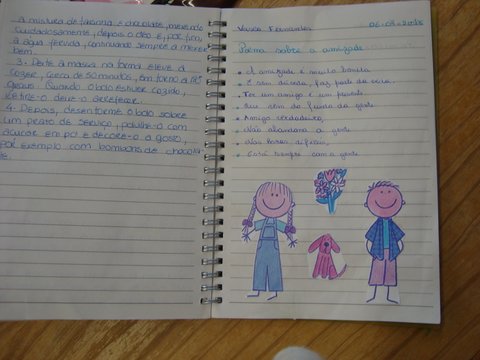 a mistura de farinha e chocolate, mexendo
cuidadosamente, depois o óleo e, por fim,
a água fervida, continuando sempre a mexer
bem.
3. Deite a massa na forma e leve a
cozer, cerca de 50 minutos, em forno a
graus. Quando o bolo estiver cozido,
retire-o e deixe-o arrefecer.
4. Depois, desenforme o bolo sobre
um prato de serviço, polvilhe-o com
açúcar em pó e decore-o a gosto,
por exemplo com bombons de chocola
te.
Vasco Fernandes
Poema sobre a amizade
A amizade é muito bonita
E sem dúvida, faz parte da vida.
Ter um amigo é um
Que vem do fundo da gente
Amigo verdadeiro,
Não abandona a gente
Nas horas difíceis,
Está sempre com a gente